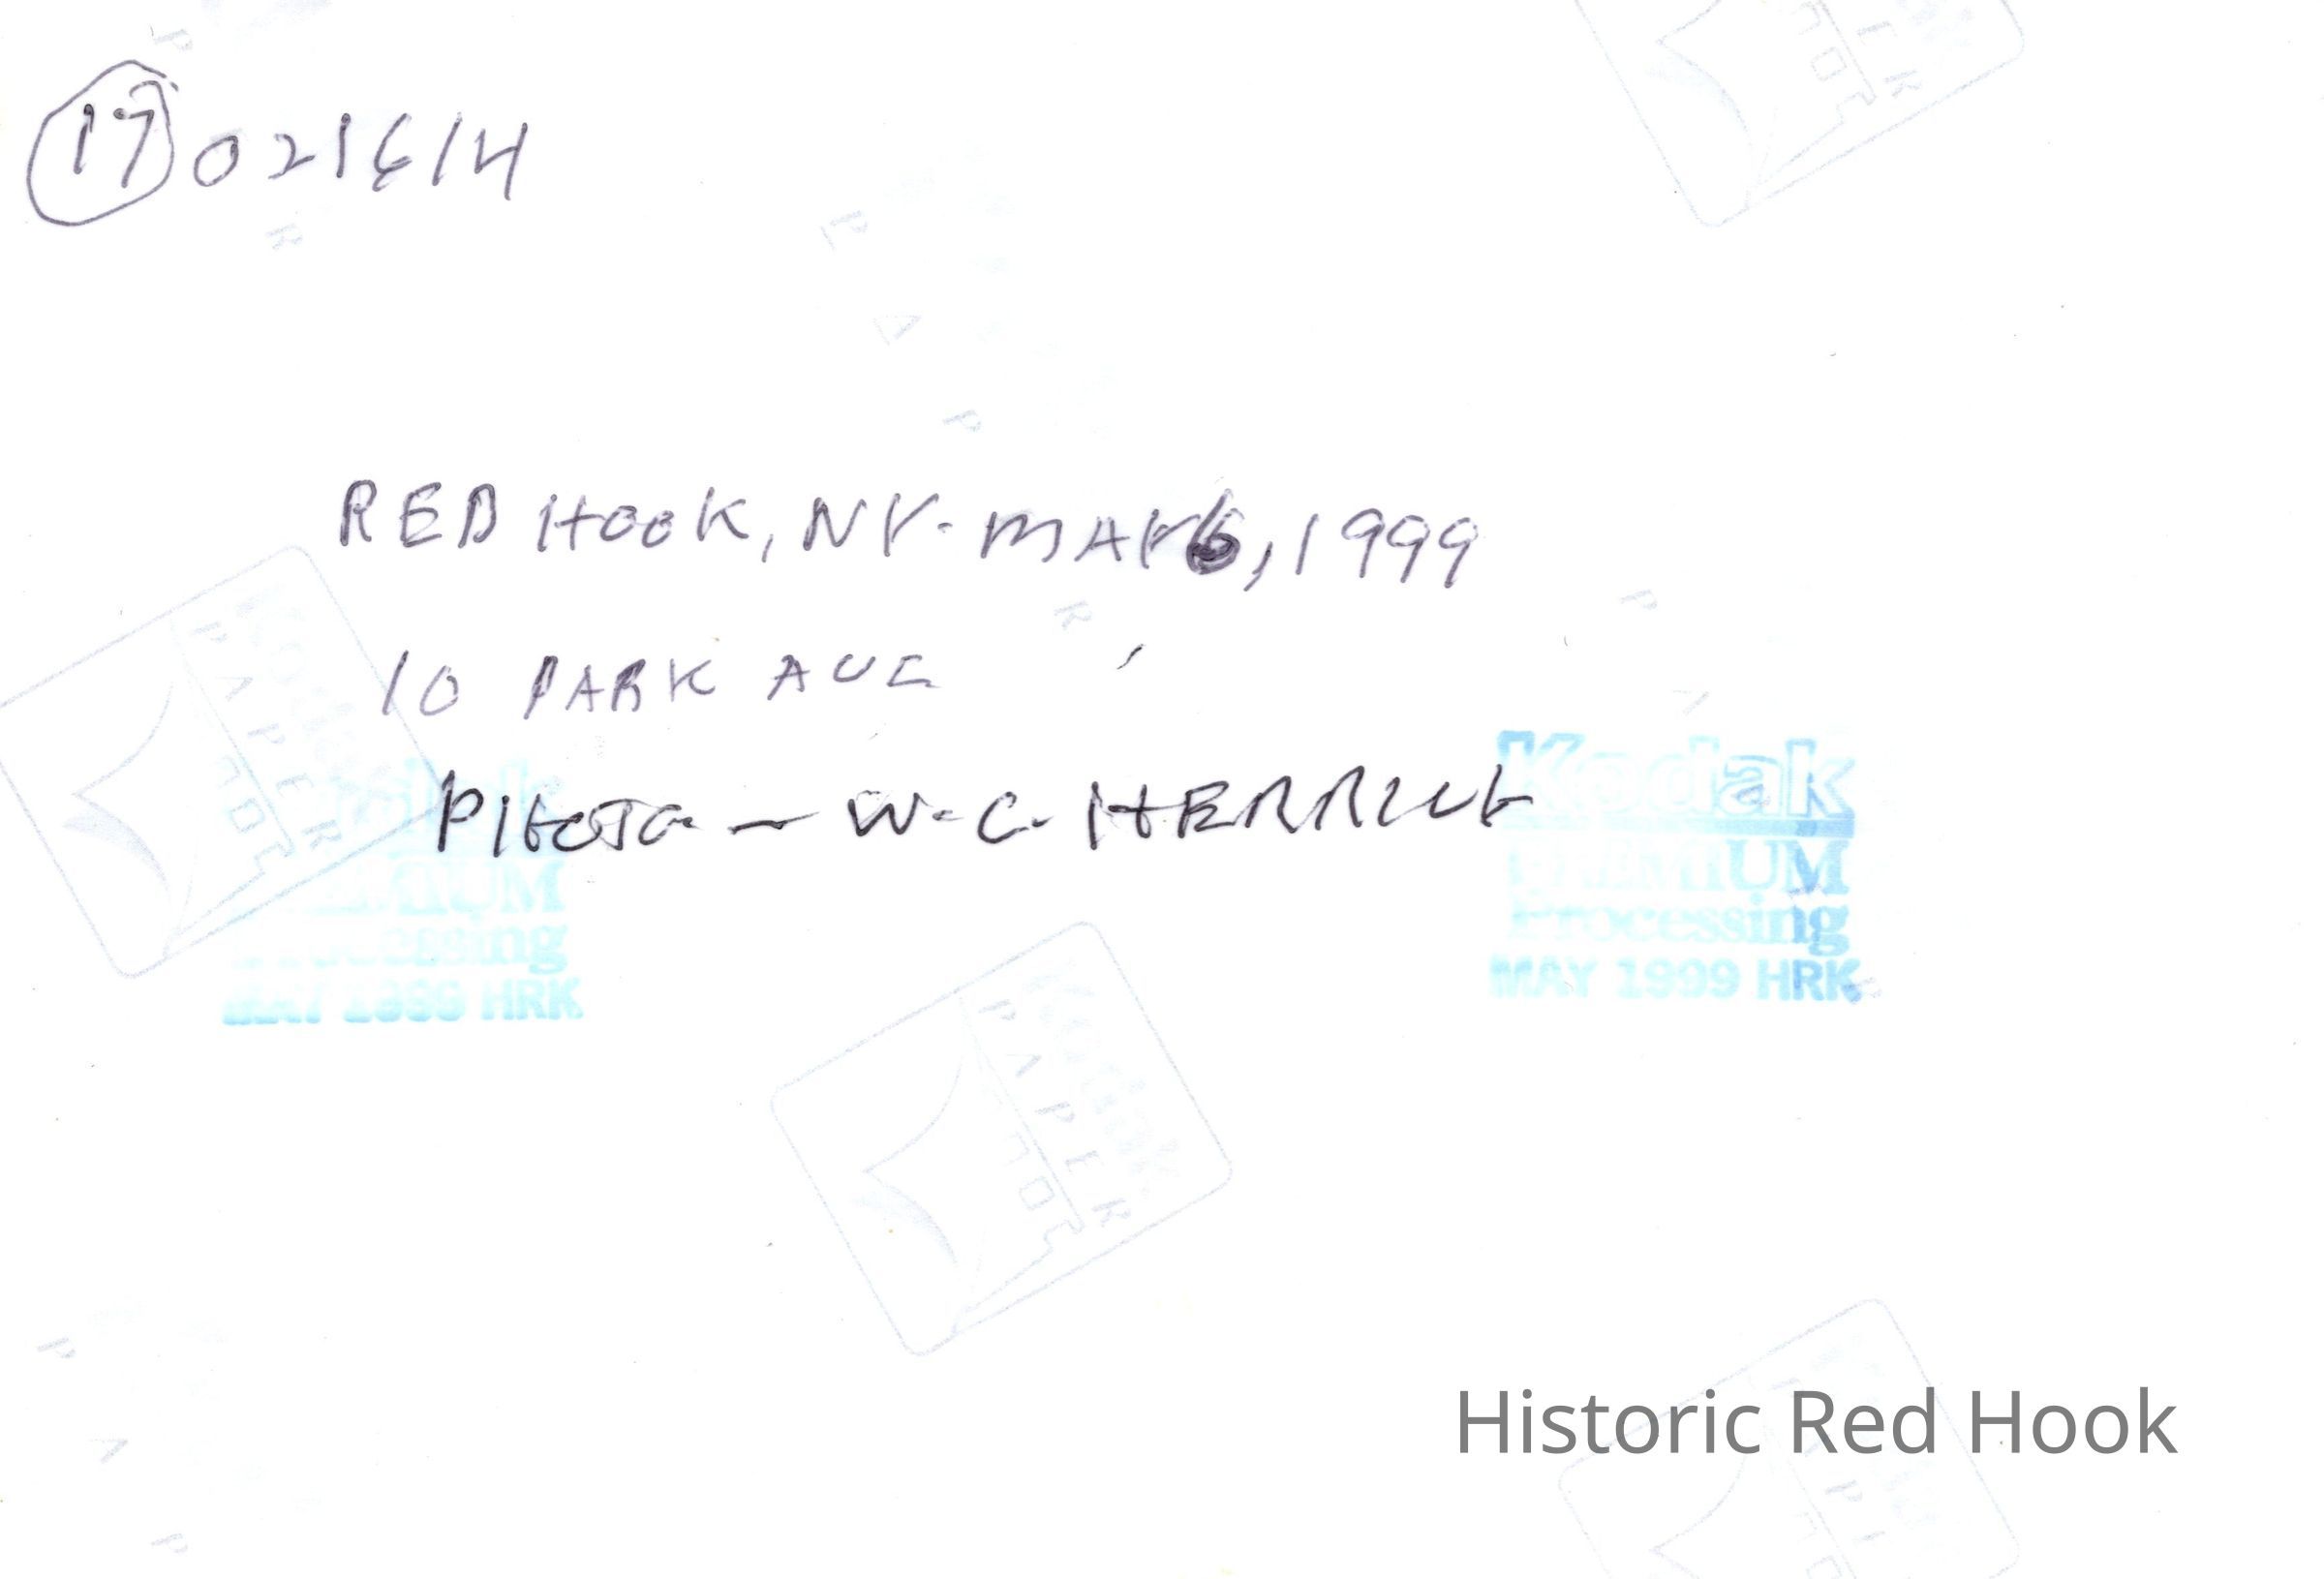 17 021614
RED HOOK, NY. MAY 6, 1999
10 PARK AVE
PHOTO — W. C. HERRICK
Kodak
PREMIUM
Processing
MAY 1999 HRK
PREMIUM
Processing
MAY 1999 HRK
Kodak
PAPER
Kodak
PAPER
Historic Red Hook